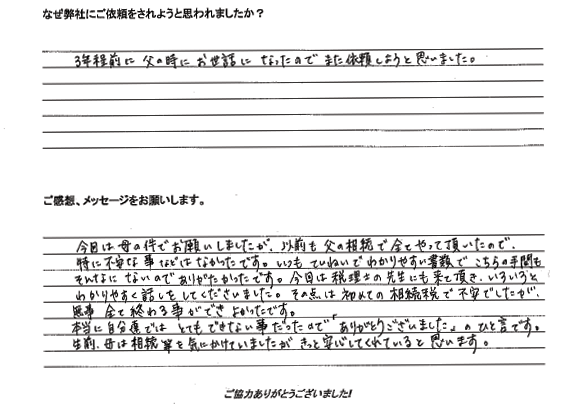 なぜ弊社にご依頼をされようと思われましたか？
3年程前に父の時にお世話になったのでまた依頼しようと思いました。
ご感想、メッセージをお願いします。
今回は母の件でお願いしましたが、以前も父の相続で全てやって頂いたので、
特に不安な事などはなかったです。いつもていねいでわかりやすい書類でこちらの手間も
そんなにないのでありがたかったです。今回は税理士の先生にも来て頂き、いろいろと
わかりやすく話しをしてくださいました。その点は初めての相続税で不安でしたが、
無事全て終わる事ができよかったです。
本当に自分達ではとてもできない事だったので「ありがとうございました」のひと言です。
生前、母は相続の事を気にかけていましたがきっと安心してくれていると思います。
ご協力ありがとうございました!